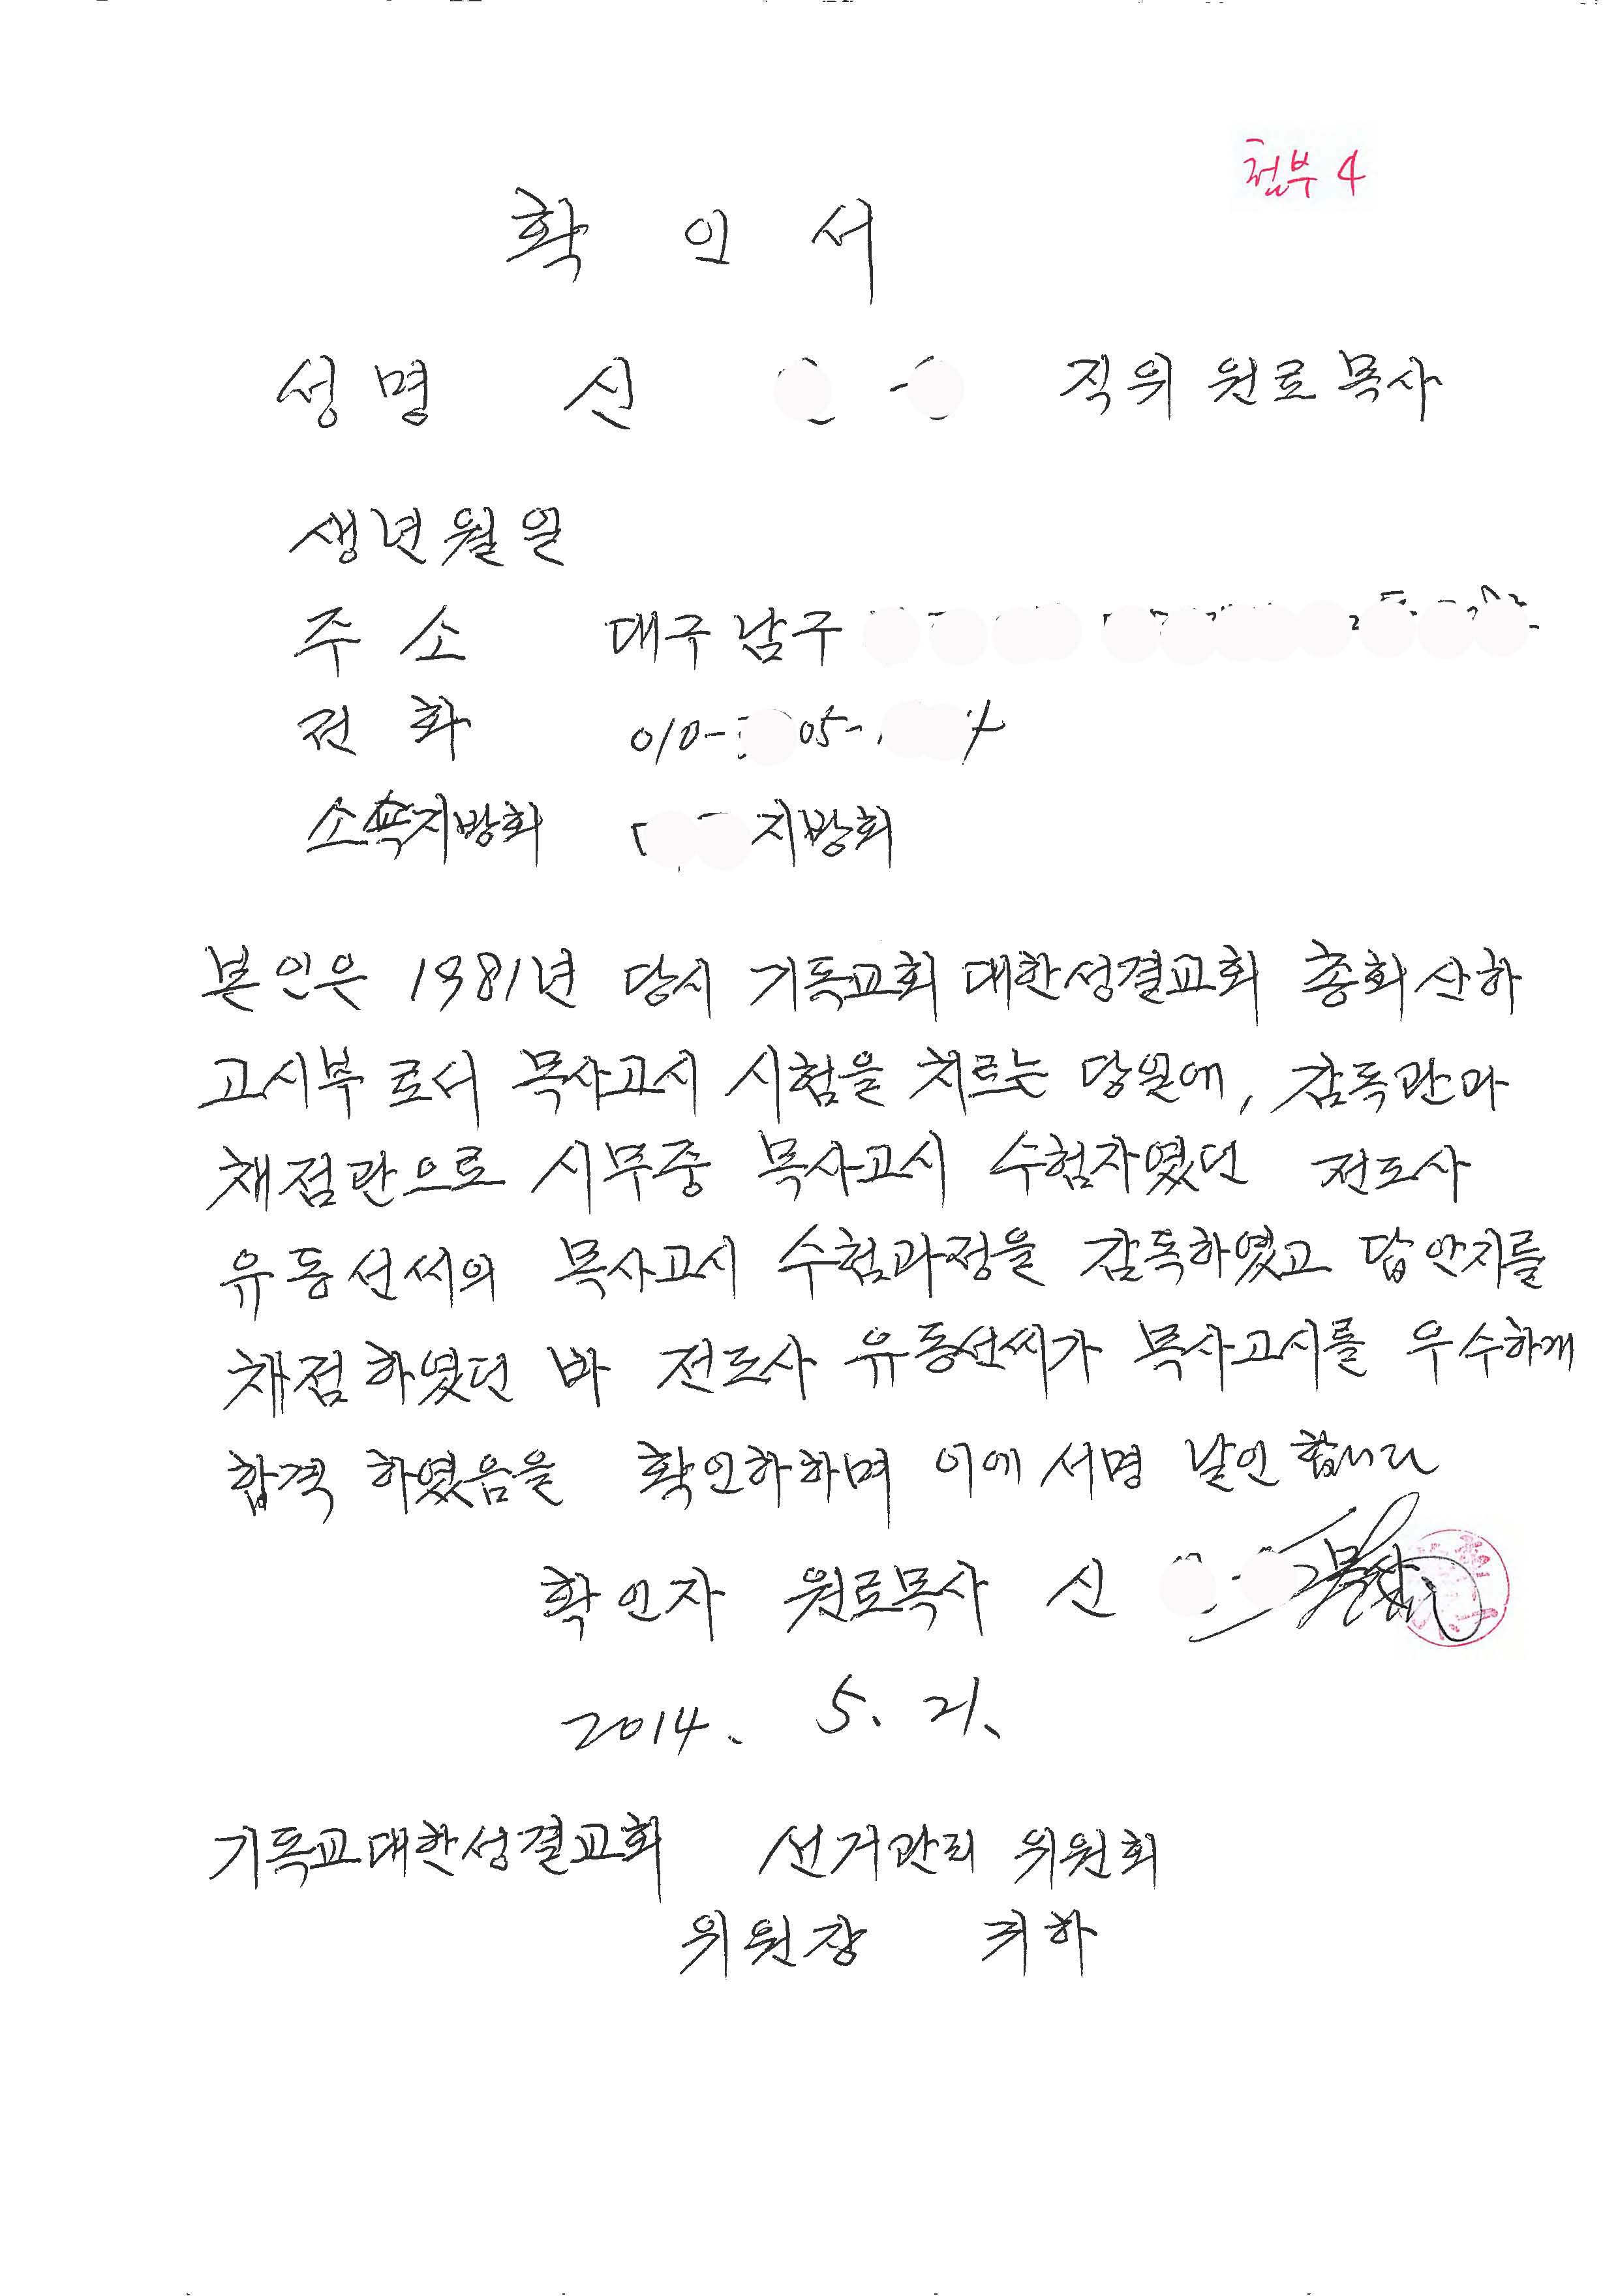 첨부 4
확 인 서
성 명 신 직위 원로목사
생년월일
주 소 대구 남구
전 화 010- 05-
소속지방회 지방회
본인은 1981년 당시 기독교회 대한성결교회 총회산하
고시부 로서 목사고시 시험을 치르는 당일에, 감독관과
채점관으로 시무중 목사고시 수험자였던 전도사
유동선씨의 목사고시 수험과정을 감독하였고 답안지를
채점하였던 바 전도사 유동선씨가 목사고시를 우수하게
합격 하였음을 확인하하며 이에 서명 날인 합니다
확인자 원로목사 신
2014. 5. 21.
기독교대한성결교회 선거관리 위원회
위원장 귀하